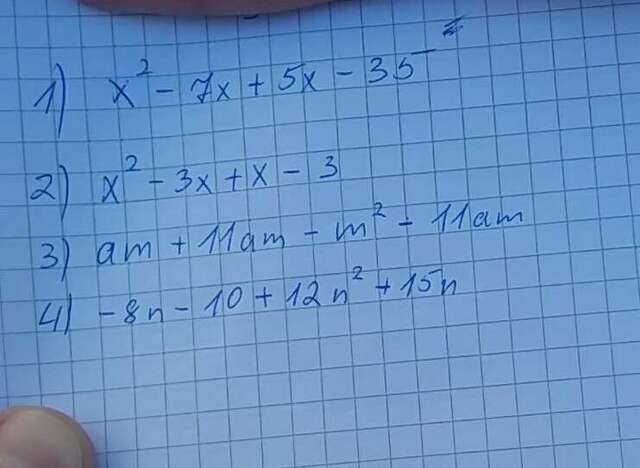 1) x² - 7x + 5x - 35 =
2) x² - 3x + x - 3
3) am + 11am - m² - 11am
4) -8n - 10 + 12n² + 15n